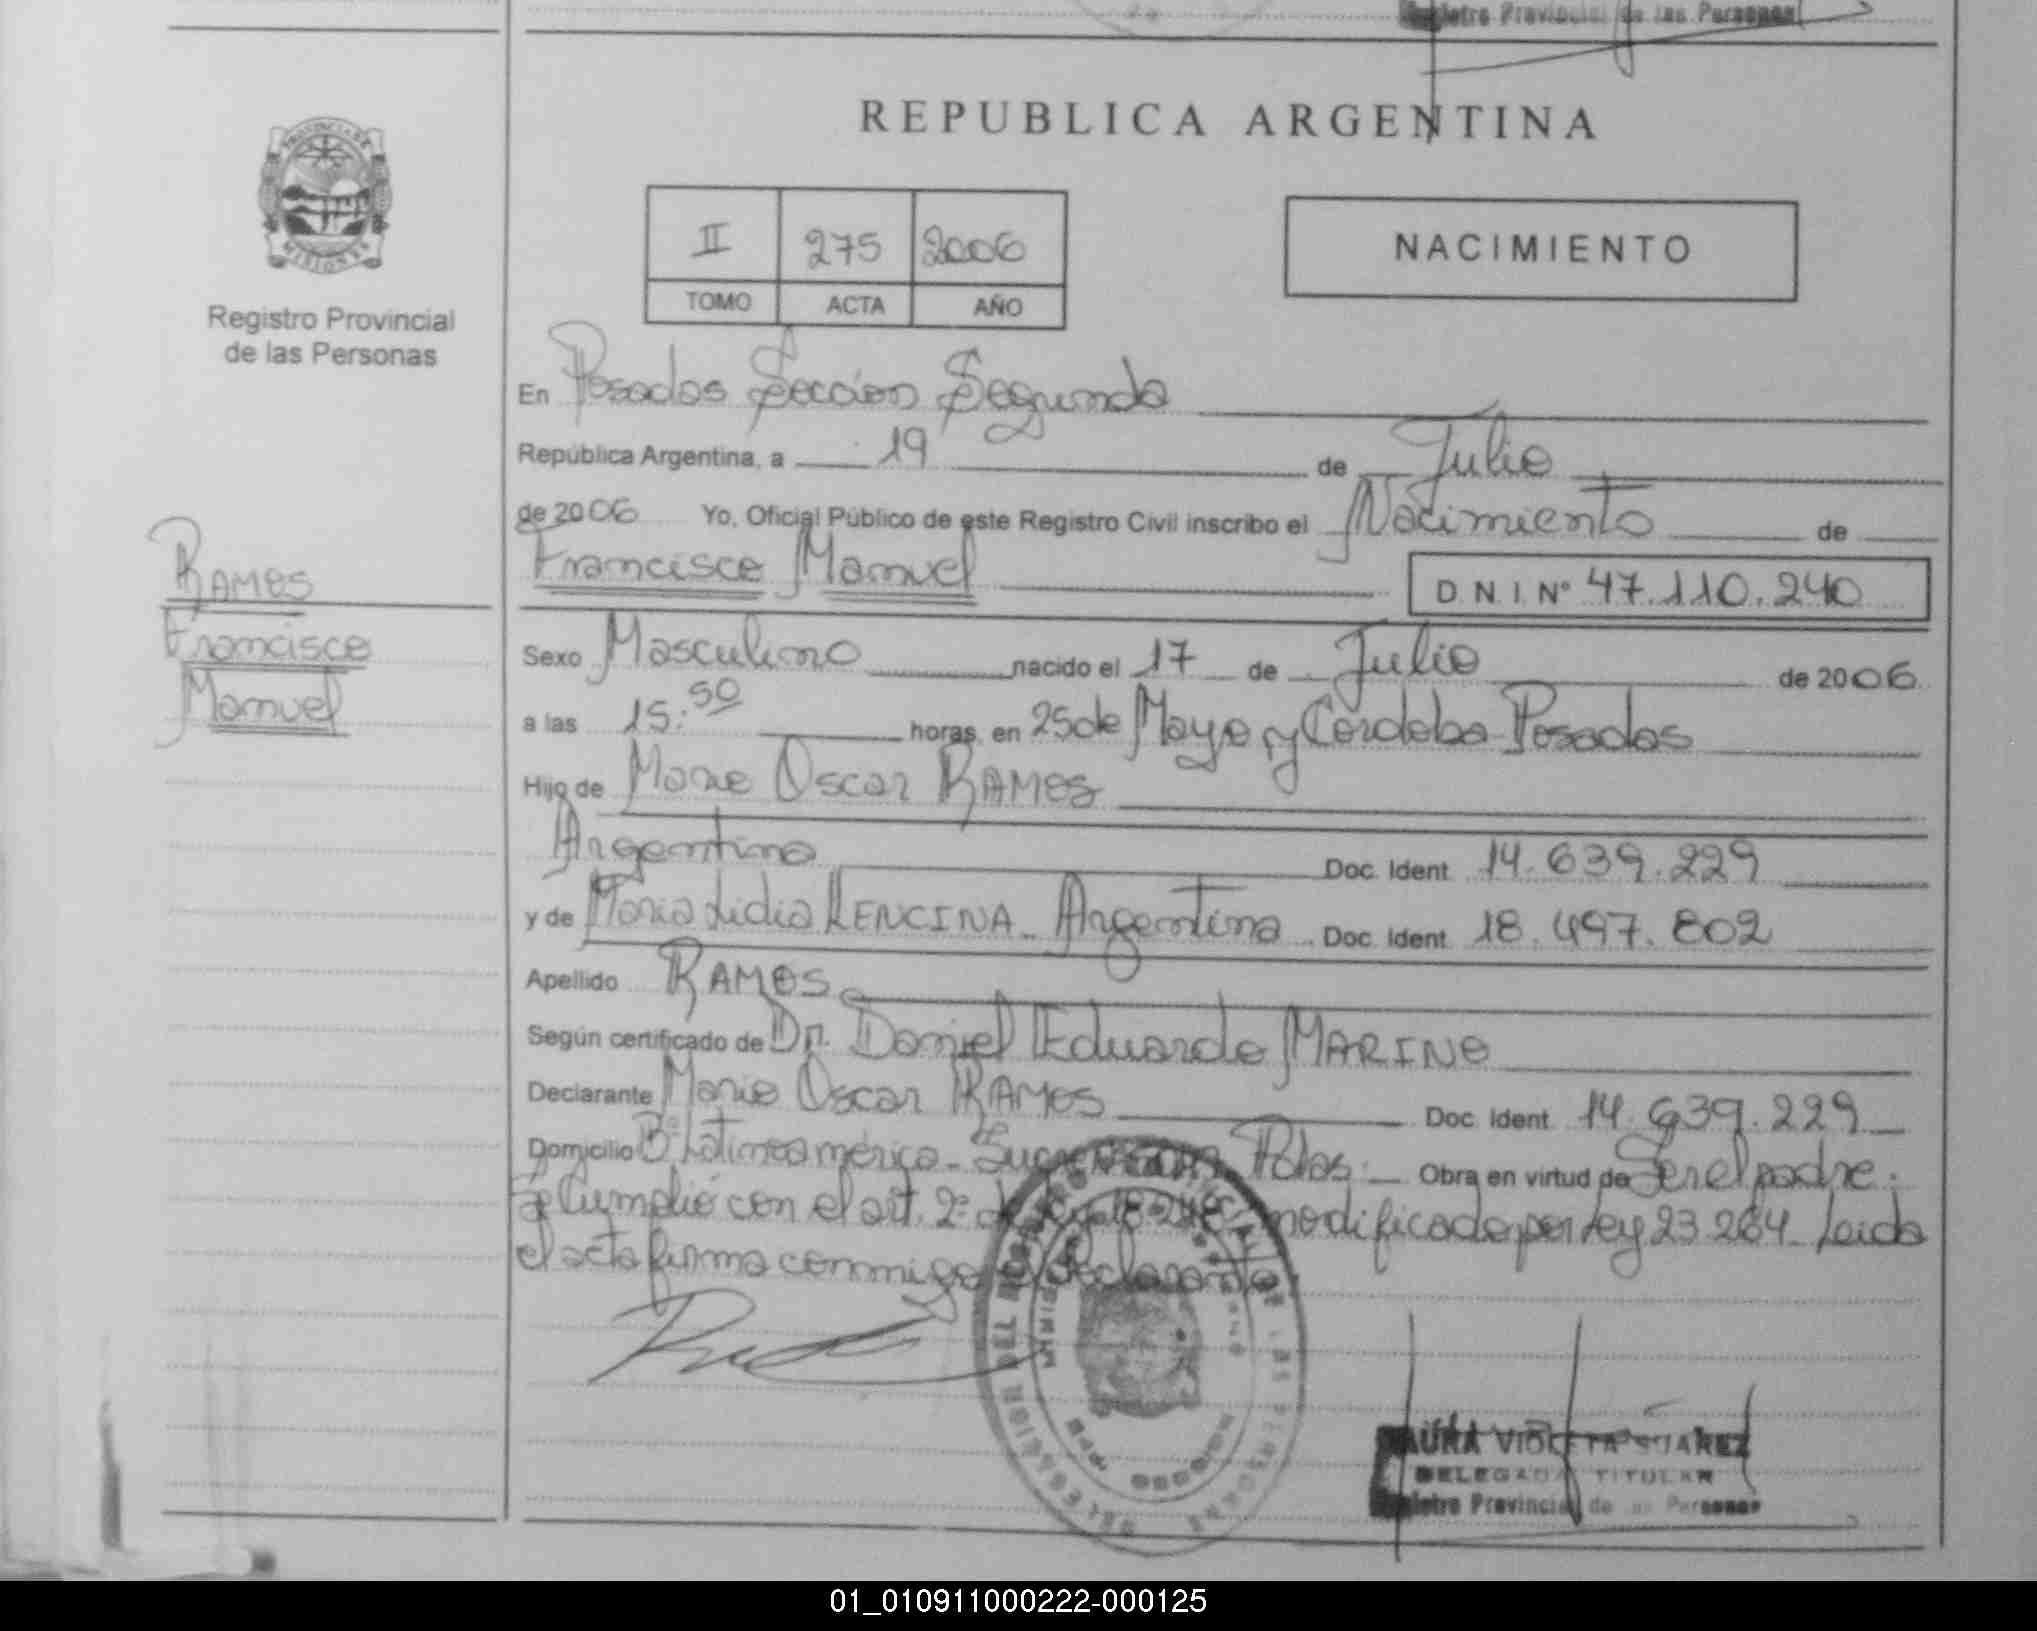 Registro Provincial de las Personas
REPUBLICA ARGENTINA
PROVINCIA DE
MISIONES
Registro Provincial
de las Personas
II 275 2006
TOMO ACTA AÑO
NACIMIENTO
En Posadas Sección Segunda
República Argentina, a 19 de Julio
de 2006 Yo, Oficial Público de este Registro Civil inscribo el Nacimiento de
Francisco Manuel D.N.I. Nº 47.110.240
RAMOS
Francisco
Manuel
Sexo Masculino nacido el 17 de Julio de 2006
a las 15:50 horas, en 25 de Mayo y Cordoba Posadas
Hijo de Mario Oscar RAMOS
Argentino Doc. Ident 14.639.229
y de Maria Lidia LENCINA Argentina Doc. Ident 18.497.802
Apellido RAMOS
Según certificado de Dr. Daniel Eduardo MARINO
Declarante Mario Oscar RAMOS Doc. Ident 14.639.229
Domicilio Bº Latinoamérica Pdas. Obra en virtud de Ser el padre.
Se Cumplió con el art. 2º modificado por Ley 23.264 Leida
el acta firma conmigo el declarante
DELEGACION DEL REGISTRO PROVINCIAL DE LAS PERSONAS
VIOLETA SUAREZ
DELEGADA TITULAR
Registro Provincial de las Personas
01_010911000222-000125